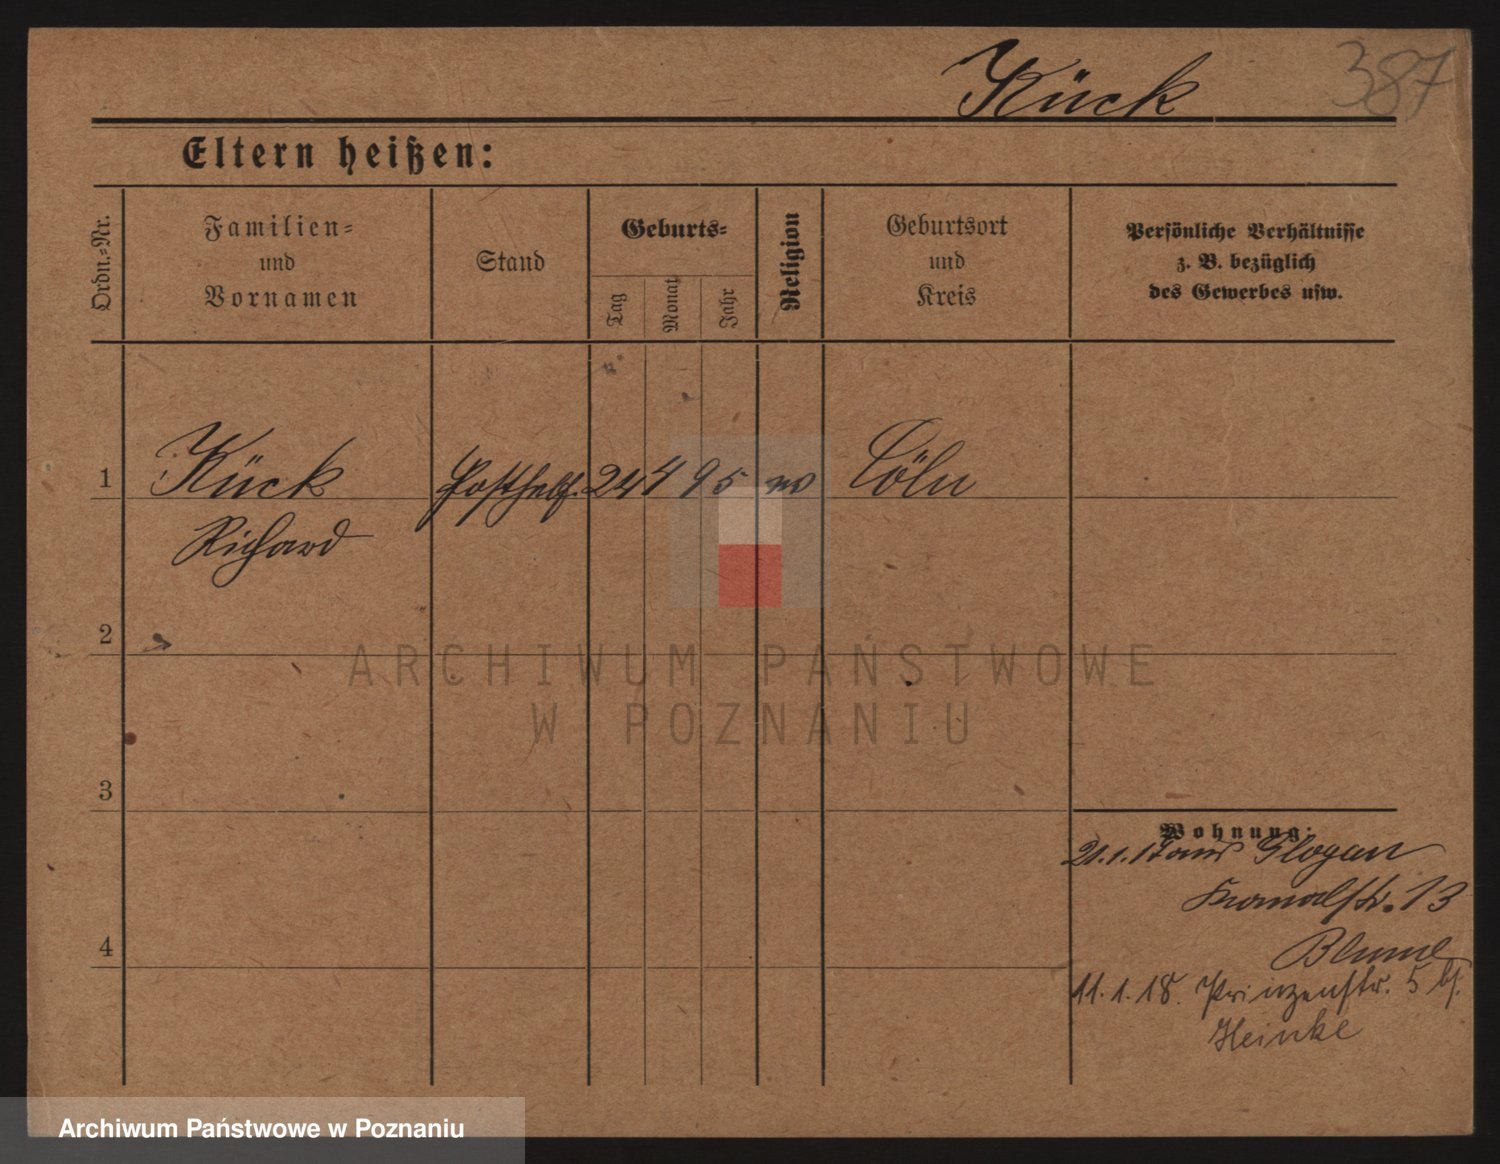 Kück
387
Eltern heißen:
Ordn.-Nr.
Familien-
und
Vornamen
Stand
Geburts-
Tag
Monat
Jahr
Religion
Geburtsort
und
Kreis
Persönliche Verhältnisse
z. B. bezüglich
des Gewerbes usw.
1 Kück Posthelf. 24 4 95 ev Cöln
Richard
2
3
4
Wohnung:
21.1.17 aus Glogau
Kanalstr. 13
Blume
11.1.18. Prinzenstr. 5 bf.
Heinke
ARCHIWUM PAŃSTWOWE
W POZNANIU
Archiwum Państwowe w Poznaniu